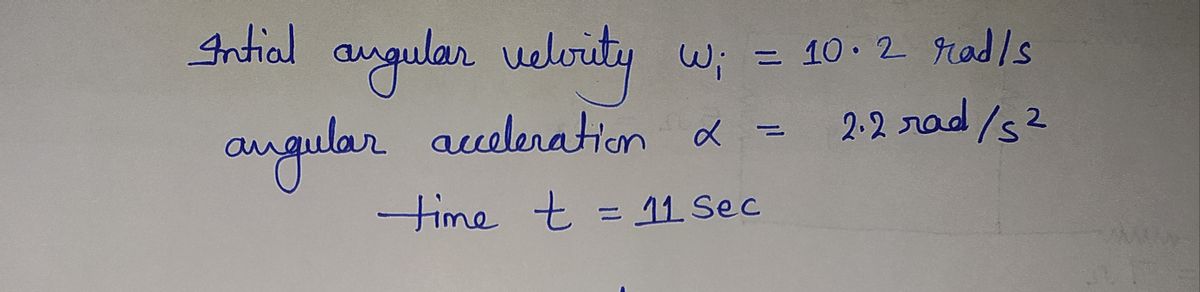 Intial angular velocity ωi = 10.2 rad/s
angular acceleration α = 2.2 rad/s²
time t = 11 sec